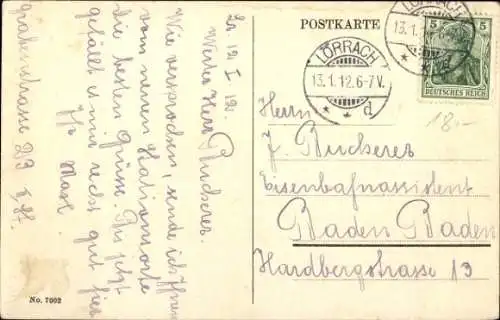 POSTKARTE
LÖRRACH
13.1.12.6-7V.
* * d
LÖRRACH
13.1.
5 5
DEUTSCHES REICH
18.-
Herrn
J. Bucherer
Eisenbahnassistent
Baden Baden
Hardbergstrasse 13
Lö. 12 I 12.
Werter Herr Bucherer.
Wie versprochen, sende ich Ihnen
vom neuen Stationsorte
die besten Grüsse. Bis jetzt
gefällt es mir recht gut hier
Ihr Max.
Grabenstrasse 23 I. St.
No. 7002